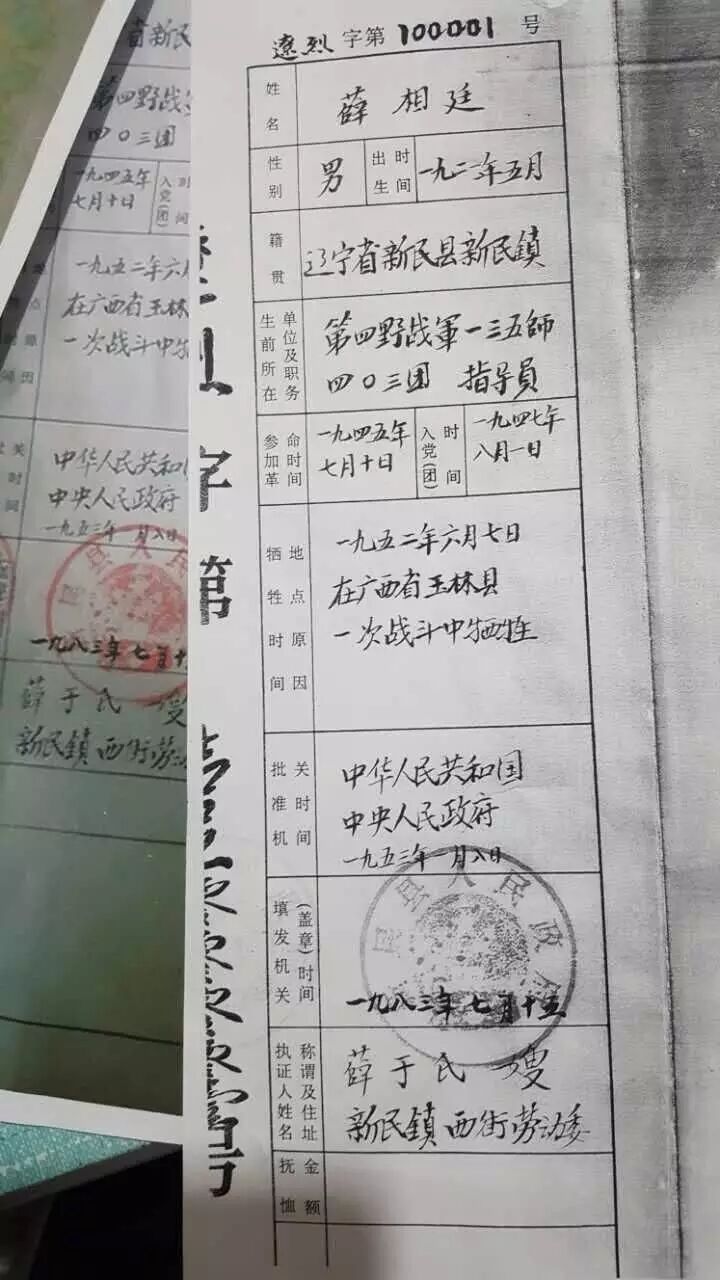 遼烈字第100001号
姓名 薛相廷
性别 男 出生时间 一九二一年五月
籍贯 辽宁省新民县新民鎮
生前所在单位及职务 第四野战軍一三五師
四0三团 指导員
参加革命时间 一九四五年
七月十日
入党(团)时间 一九四七年
八月一日
牺牲时间地点原因 一九五二年六月七日
在广西省玉林县
一次战斗中牺牲
批准机关时间 中华人民共和国
中央人民政府
一九五三年一月八日
填发机关(盖章)时间 一九八三年七月十五
民县人民政
执证人姓名称谓及住址 薛于氏
新民鎮西街劳动委
抚恤金额
字第
省新民
第四野战
四0三团
一九四五年
七月十日
入党(团)时间
一九五二年六月
在广西省玉林
一次战斗中牺
中华人民共和国
中央人民政府
一九五三年 月八日
人民
一九八三年七月十
薛于氏
新民鎮西街劳动